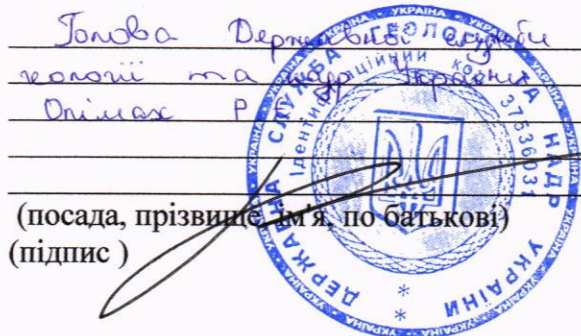 Голова Державної служби
геології та надр України
Опімах Р
(посада, прізвище, ім'я, по батькові)
(підпис )
ДЕРЖАВНА СЛУЖБА ГЕОЛОГІЇ ТА НАДР УКРАЇНИ
Ідентифікаційний код 37536031
УКРАЇНА